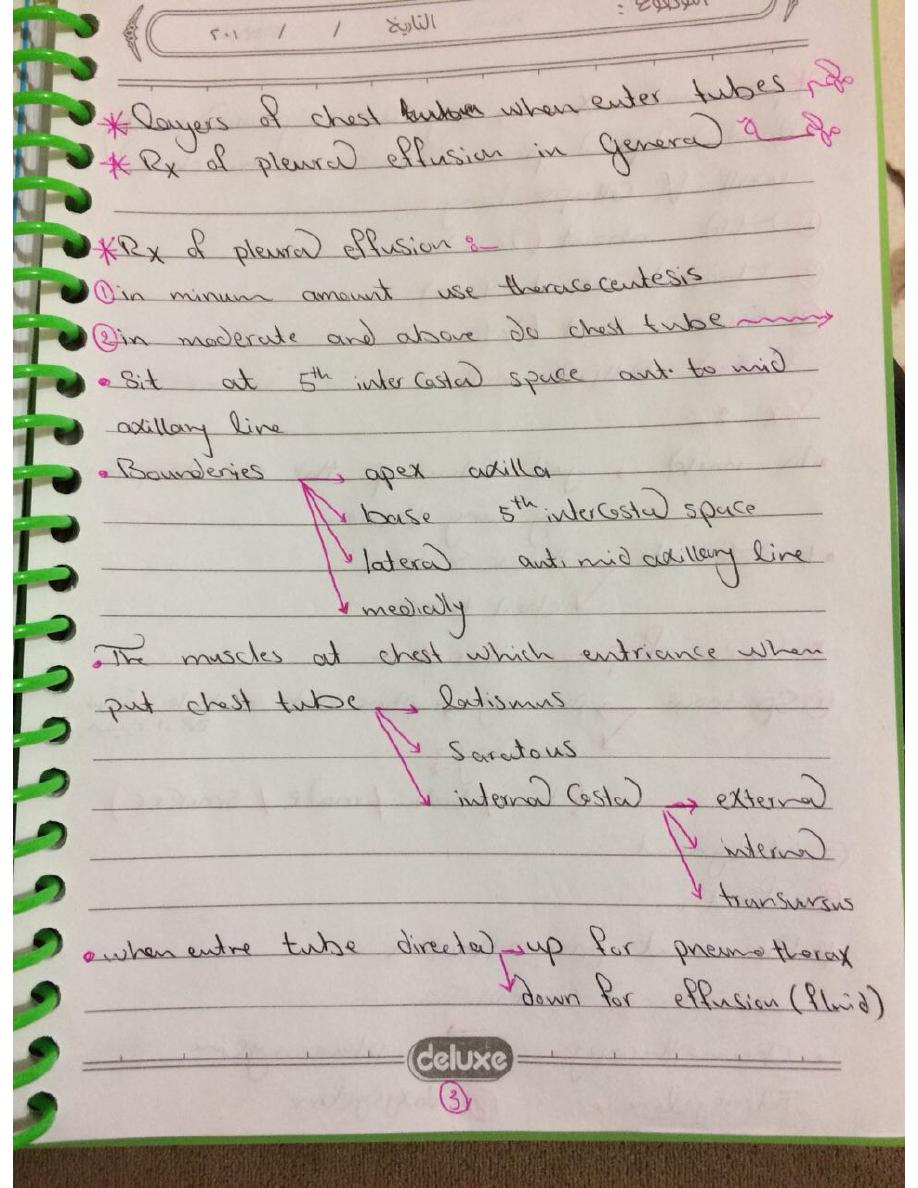 الموضوع :
التاريخ / / ٢٠١
* layers of chest when enter tubes
* Rx of pleural effusion in General
* Rx of pleural effusion :-
① in minum amount use theracocentesis
② in moderate and above do chest tube
• Sit at 5th inter Costal space ant. to mid
axillary line
• Bounderies → apex axilla
base 5th interCostal space
lateral ant. mid axillary line
medially
• The muscles at chest which entriance when
put chest tube → latismus
Saratous
internal Costal → external
internal
transversus
• when entre tube directed → up for pnemothorax
down for effusion (fluid)
deluxe
3